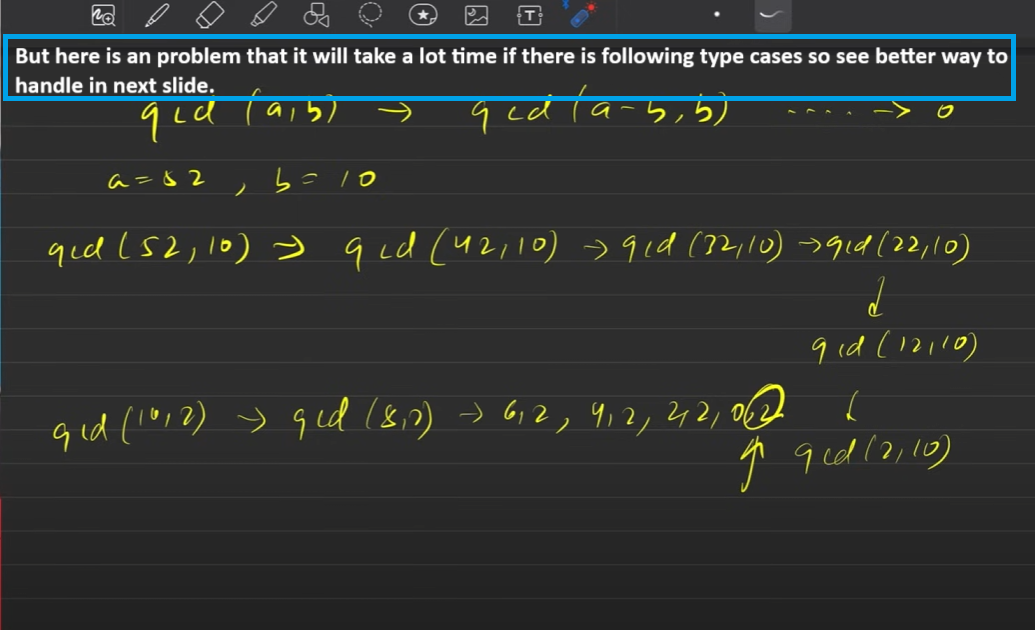 But here is an problem that it will take a lot time if there is following type cases so see better way to
handle in next slide.
gcd (a,b) → gcd (a-b, b) ....→ 0
a=52 , b=10
gcd (52, 10) → gcd (42,10) → gcd (32,10) → gcd (22,10)
↓
gcd (12,10)
↓
gcd (10,2) → gcd (8,2) → 6,2, 4,2, 2,2, 0,2
gcd (2,10)